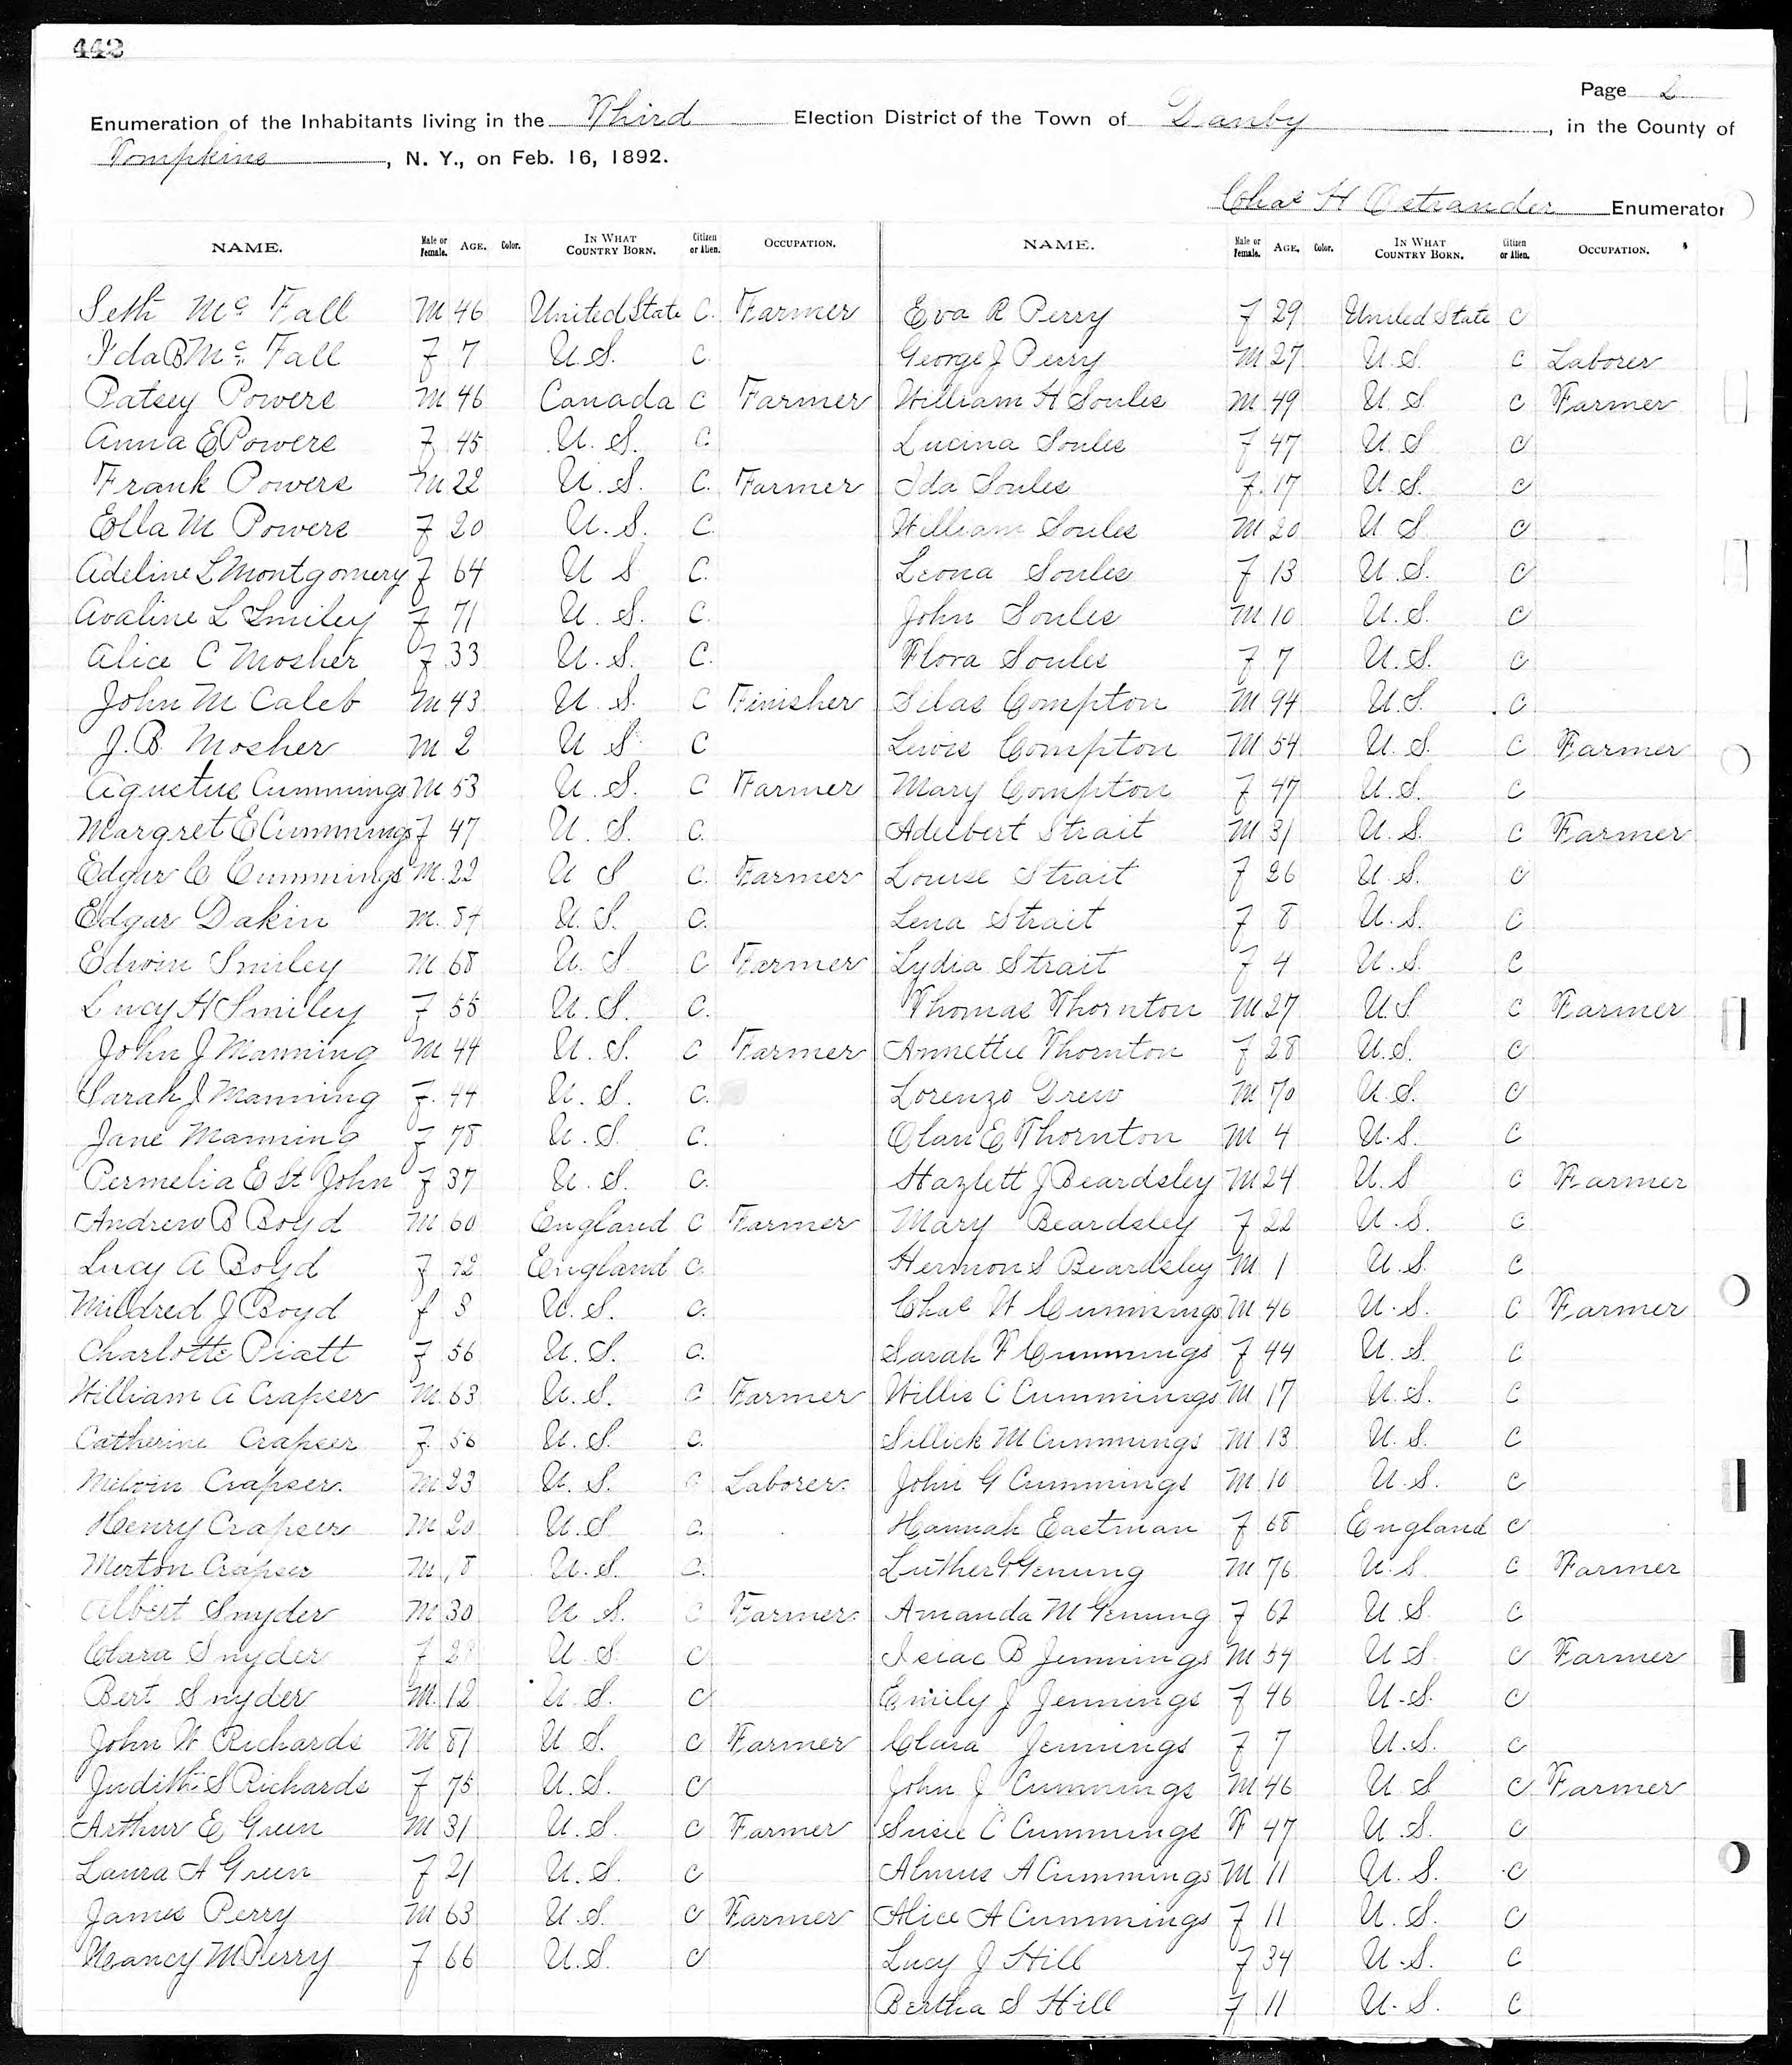 442
Page 2
Enumeration of the Inhabitants living in the Third Election District of the Town of Danby, in the County of
Tompkins, N. Y., on Feb. 16, 1892.
Chas H Ostrander Enumerator
NAME. Male or Female. AGE. Color. IN WHAT COUNTRY BORN. Citizen or Alien. OCCUPATION.
Seth Mc Fall M 46 United State C. Farmer
Ida B Mc Fall F 7 U.S. C
Patsey Powers M 46 Canada C Farmer
Anna E Powers F 45 U.S. C.
Frank Powers M 22 U.S. C. Farmer
Ella M Powers F 20 U.S. C
Adeline L Montgomery F 64 U S C.
Avaline L Smiley F 71 U.S. C.
Alice C Mosher F 33 U.S. C.
John M Caleb M 43 U.S. C Finisher
J. B. Mosher M 2 U S C
Agustus Cummings M 53 U.S. C Farmer
Margret E Cummings F 47 U.S. C.
Edgar C Cummings M. 22 U S C. Farmer
Edgar Dakin M. U.S. C.
Edwin Smiley M 68 U.S C Farmer
Lucy H Smiley F 55 U.S. C.
John J Manning M 44 U.S. C Farmer
Sarah J Manning F. 44 U.S. C.
Jane Manning F 78 U.S. C.
Permelia E St John F 37 U.S. C.
Andrew B Boyd M 60 England C Farmer
Lucy A Boyd F England C.
Mildred J Boyd f 8 U.S. C.
Charlotte Piatt F 56 U.S. C.
William A Crapser M. 63 U.S. C Farmer
Catherine Crapser F. 56 U.S. C.
Melvin Crapser. M 23 U.S. C Laborer.
Henry Crapser M 20 U.S C.
Merton Crapser M. 8 U.S. C.
Albert Snyder M 30 U S. C Farmer.
Clara Snyder F U.S. C
Bert Snyder M. 12 U S. C
John W Richards M 81 U S. C Farmer
Judith S Richards F 75 U.S. C
Arthur E Green M 31 U.S. C Farmer
Laura A Green F 21 U.S. C
James Perry M 63 U.S. C Farmer
Nancy M Perry F 66 U.S. C
NAME. Male or Female. AGE. Color. IN WHAT COUNTRY BORN. Citizen or Alien. OCCUPATION.
Eva R Perry F 29 United State C
George J Perry M 27 U.S. C Laborer
William H Soules M 49 U.S C Farmer
Lucina Soules F 47 U.S C
Ida Soules F. 17 U.S. C
William Soules M 20 U S C
Leona Soules F 13 U.S. C
John Soules M 10 U.S. C
Flora Soules F 7 U.S. C
Silas Compton M 94 U.S. C
Lewis Compton M 54 U.S. C Farmer
Mary Compton F 47 U.S. C
Adelbert Strait M 31 U.S. C Farmer
Louise Strait F 26 U.S. C
Lena Strait F 8 U.S. C
Lydia Strait F 4 U.S. C
Thomas Thornton M 27 U.S C Farmer
Annettie Thornton F 28 U.S. C
Lorenzo Drew M 70 U.S. C
Olan E Thornton M 4 U.S. C
Hazlett J Beardsley M 24 U.S C Farmer
Mary Beardsley F 22 U.S. C
Hermon S Beardsley M 1 U.S. C
Chas W Cummings M 46 U.S. C Farmer
Sarah F Cummings F 44 U.S. C
Willis C Cummings M 17 U.S. C
Sillick M Cummings M 13 U.S. C
John G Cummings M 10 U.S. C
Hannah Eastman F 68 England C
Luther G Genung M 76 U.S C Farmer
Amanda M Genung F 62 U.S C
Isiac B Jennings M 54 U S C Farmer
Emily J Jennings F 46 U.S. C
Clara Jennings F 7 U.S. C
John J Cummings M 46 U S C Farmer
Susie C Cummings F 47 U.S. C
Almus A Cummings M 11 U.S. C
Alice A Cummings F 11 U.S. C
Lucy J Hill F 34 U.S. C
Bertha S Hill F 11 U.S. C